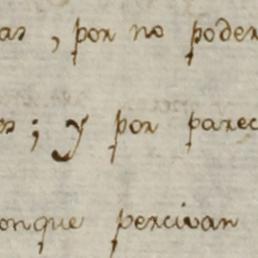 as, por no poder
os; y por parec
onque percivan